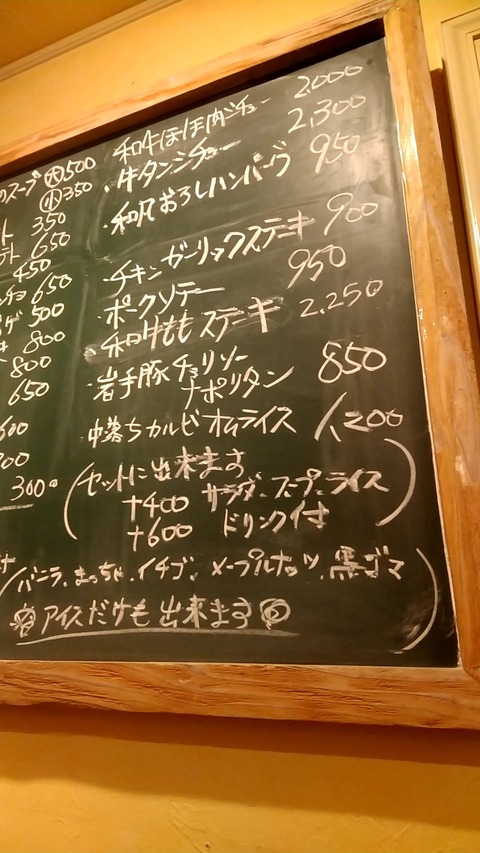 のスープ 大 500
小 350
350
650
450
650
500
800
800
650
600
300
和牛ほほ肉シチュー 2,000
・牛タンシチュー 2,300
・和風おろしハンバーグ 950
・チキンガーリックステーキ 900
ポークソテー 950
和牛ももステーキ 2,250
・岩手豚チョリソー
ナポリタン 850
・中落ちカルビオムライス 1,200
(セットに出来ます
+400 サラダ、スープ、ライス
+600 ドリンク付)
(バニラ、まっちゃ、イチゴ、メープルナッツ、黒ゴマ
アイスだけも出来ます)